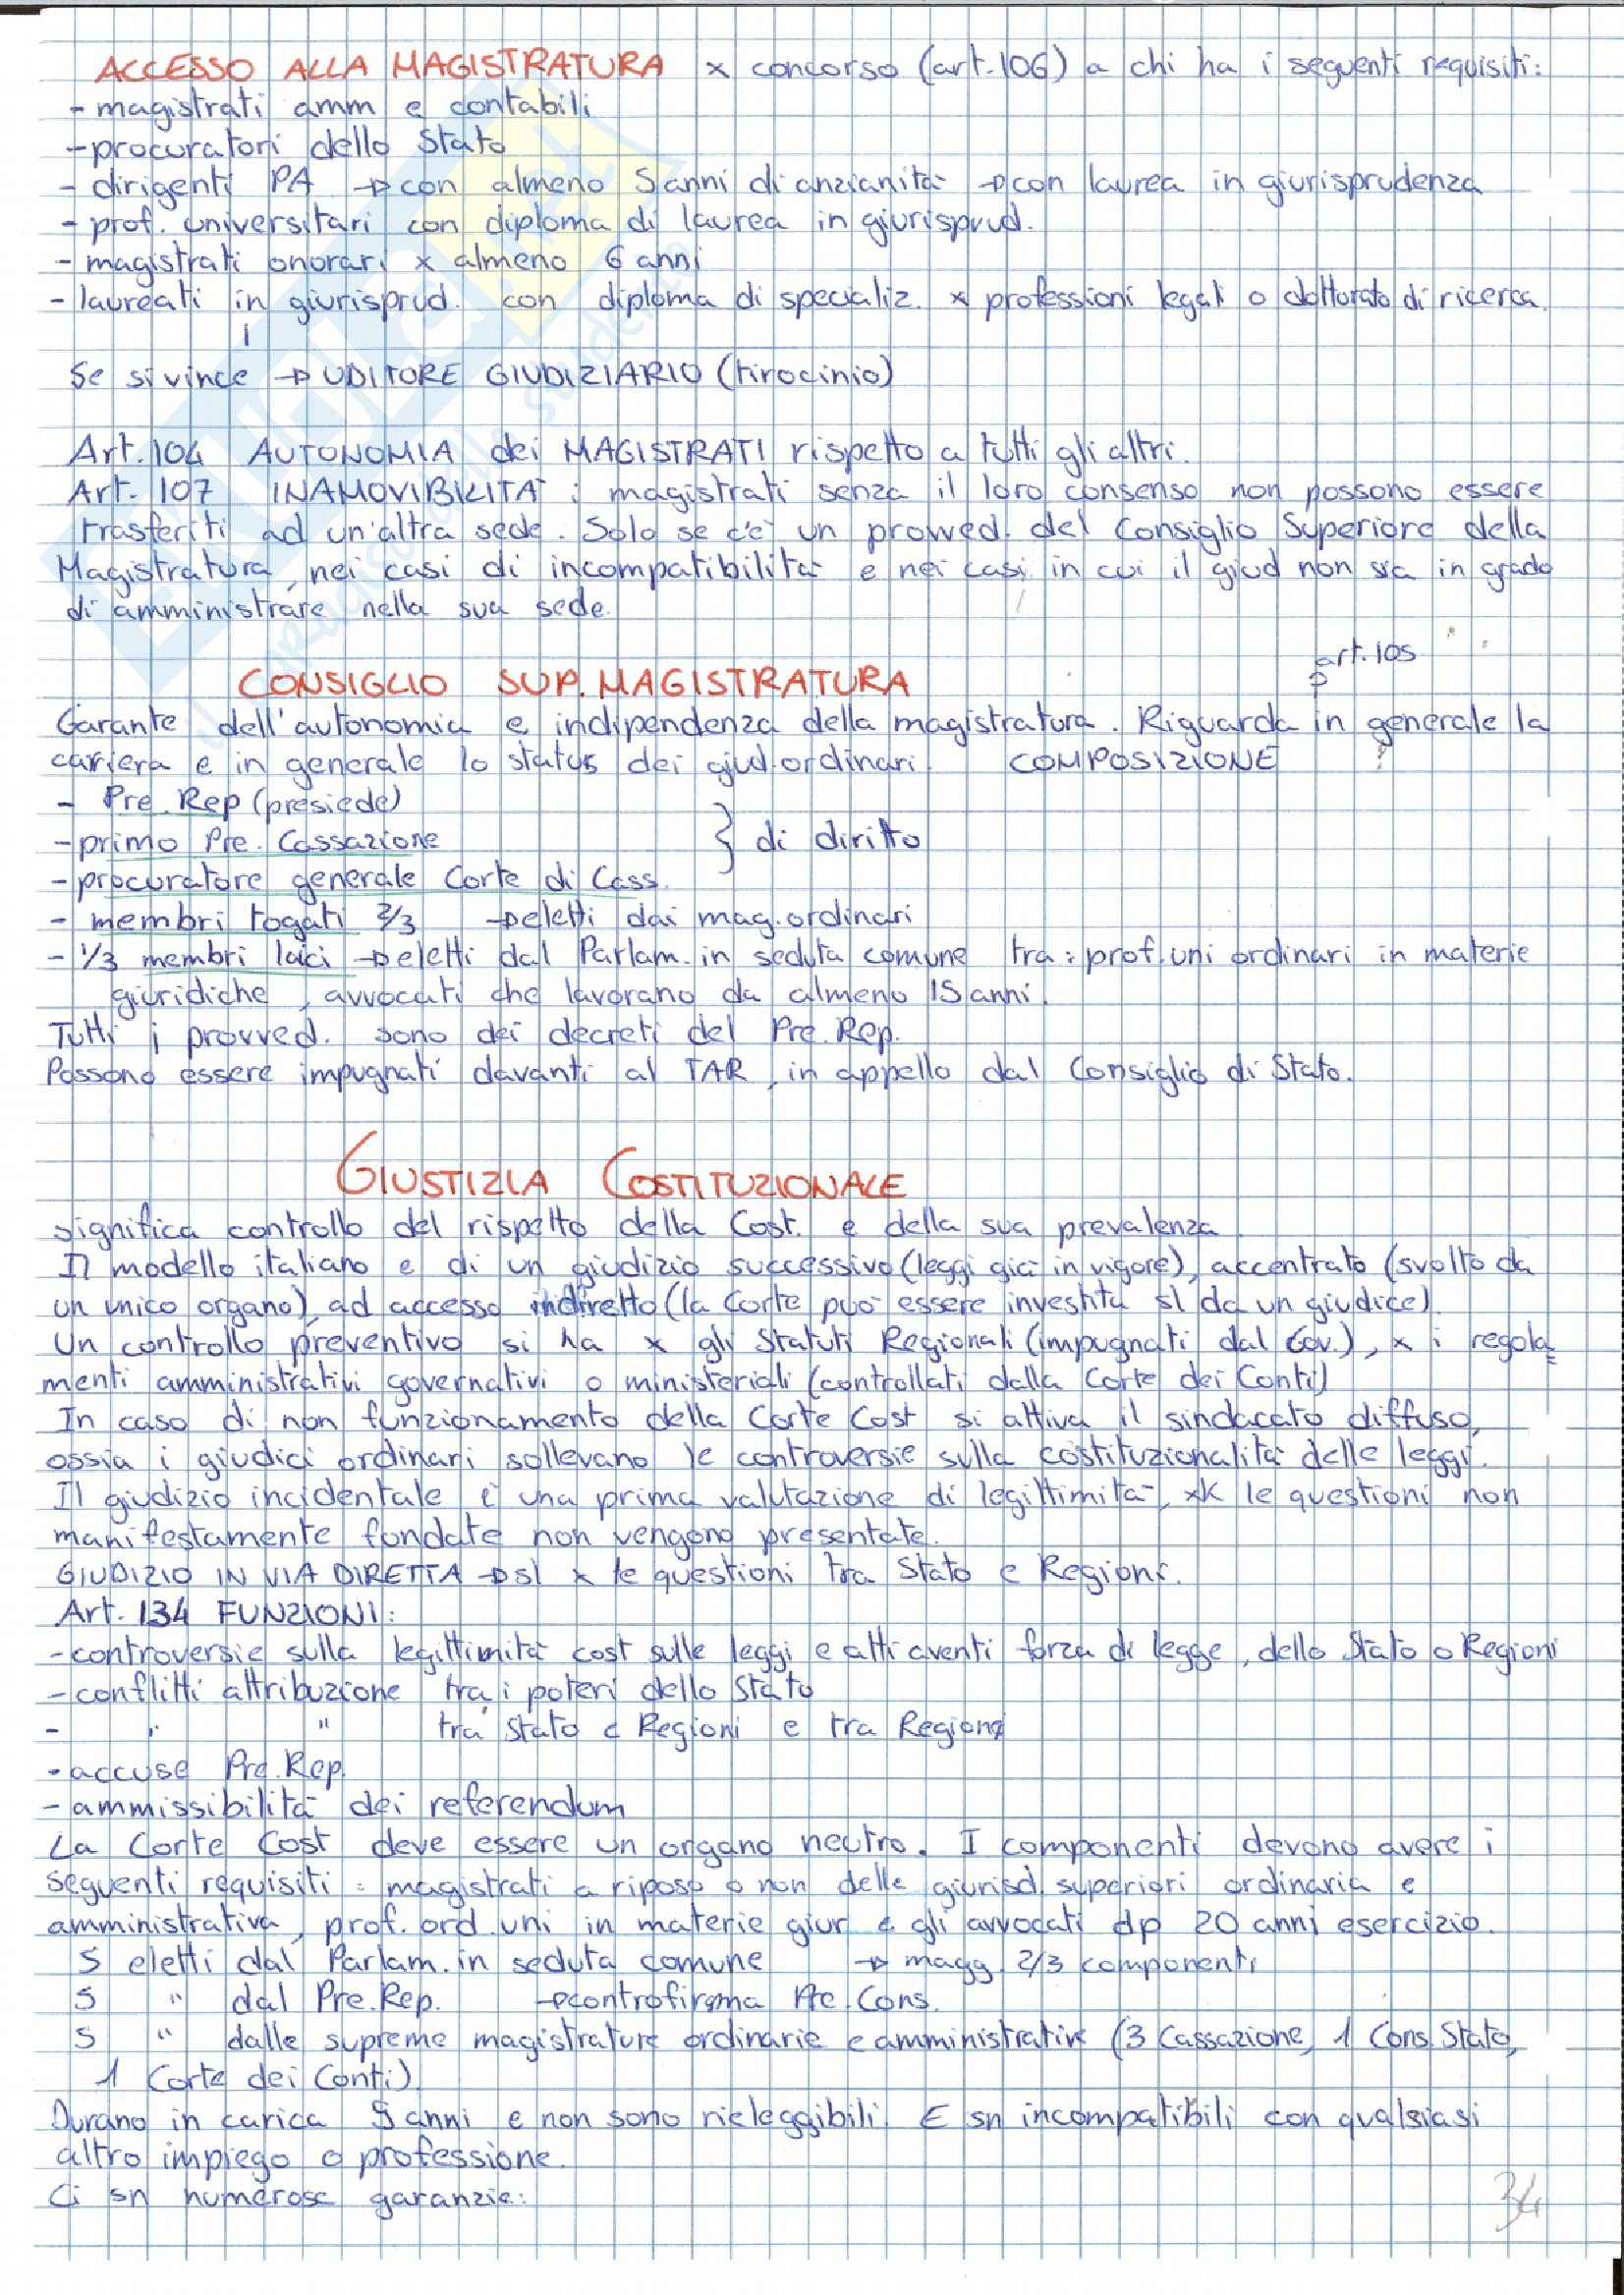 ACCESSO ALLA MAGISTRATURA x concorso (art.106) a chi ha i seguenti requisiti:
- magistrati amm e contabili
- procuratori dello Stato
- dirigenti PA → con almeno 5 anni di anzianità → con laurea in giurisprudenza
- prof. universitari con diploma di laurea in giurisprud.
- magistrati onorari x almeno 6 anni
- laureati in giurisprud. con diploma di specializ. x professioni legali o dottorato di ricerca.
Se si vince → UDITORE GIUDIZIARIO (tirocinio)
Art.104 AUTONOMIA dei MAGISTRATI rispetto a tutti gli altri.
Art. 107 INAMOVIBILITA' i magistrati senza il loro consenso non possono essere
trasferiti ad un'altra sede. Solo se c'è un provved. del Consiglio Superiore della
Magistratura, nei casi di incompatibilità e nei casi in cui il giud non sia in grado
di amministrare nella sua sede.
art.105
CONSIGLIO SUP. MAGISTRATURA
Garante dell'autonomia e indipendenza della magistratura. Riguarda in generale la
carriera e in generale lo status dei giud.ordinari. COMPOSIZIONE
- Pre.Rep (presiede)
- primo Pre. Cassazione } di diritto
- procuratore generale Corte di Cass.
- membri togati 2/3 → eletti dai mag.ordinari
- 1/3 membri laici → eletti dal Parlam. in seduta comune tra: prof.uni ordinari in materie
giuridiche, avvocati che lavorano da almeno 15 anni.
Tutti i provved. sono dei decreti del Pre.Rep.
Possono essere impugnati davanti al TAR, in appello dal Consiglio di Stato.
GIUSTIZIA COSTITUZIONALE
significa controllo del rispetto della Cost. e della sua prevalenza
Il modello italiano e di un giudizio successivo (leggi già in vigore), accentrato (svolto da
un unico organo), ad accesso indiretto (la Corte può essere investita sl da un giudice).
Un controllo preventivo si ha x gli Statuti Regionali (impugnati dal Gov.), x i regola=
menti amministrativi governativi o ministeriali (controllati dalla Corte dei Conti)
In caso di non funzionamento della Corte Cost si attiva il sindacato diffuso,
ossia i giudici ordinari sollevano le controversie sulla costituzionalità delle leggi.
Il giudizio incidentale è una prima valutazione di legittimità, xk le questioni non
manifestamente fondate non vengono presentate.
GIUDIZIO IN VIA DIRETTA → sl x le questioni tra Stato e Regioni.
Art. 134 FUNZIONI:
- controversie sulla legittimità cost sulle leggi e atti aventi forza di legge, dello Stato o Regioni
- conflitti attribuzione tra i poteri dello Stato
- " " tra Stato e Regioni e tra Regioni
- accuse Pre.Rep.
- ammissibilità dei referendum
La Corte Cost deve essere un organo neutro. I componenti devono avere i
seguenti requisiti: magistrati a riposo o non delle giurisd. superiori ordinaria e
amministrativa, prof. ord.uni in materie giur e gli avvocati dp 20 anni esercizio.
5 eletti dal Parlam. in seduta comune → magg. 2/3 componenti
5 " dal Pre.Rep. → controfirma Pre.Cons.
5 " dalle supreme magistrature ordinarie e amministrative (3 Cassazione, 1 Cons.Stato,
1 Corte dei Conti)
Durano in carica 9 anni e non sono rieleggibili. E sn incompatibili con qualsiasi
altro impiego o professione.
Ci sn numerose garanzie:
34